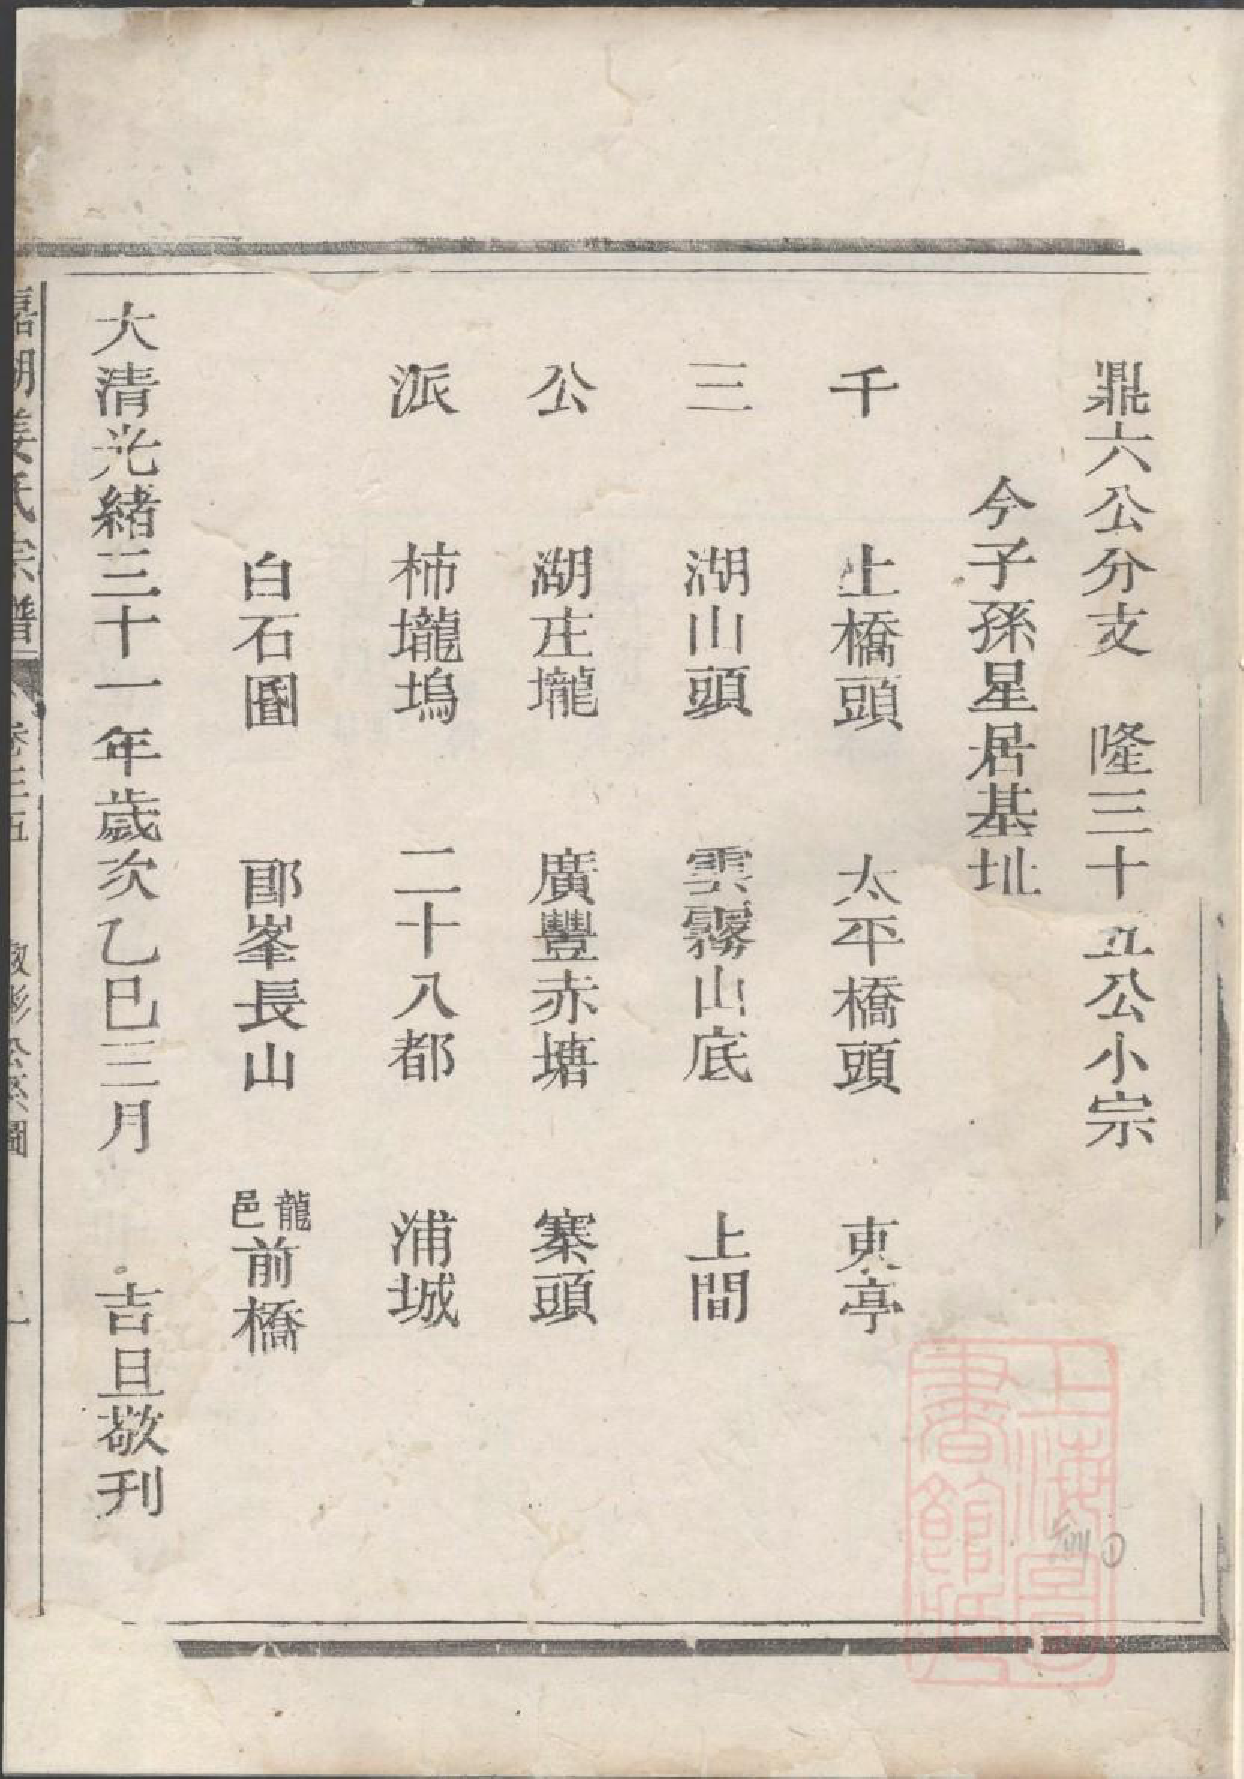 鼎六公分支　隆三十五公小宗
今子孫星居基址
千　土橋頭　太平橋頭　東亭
三　湖山頭　雲霧山底　上間
公　湖庄壠　廣豐赤塘　寨頭
派　柿壠塢　二十八都　浦城
白石圖　郎峯長山　龍邑前橋
大清光緒三十一年歲次乙巳三月　吉旦敬刊
嘉湖姜氏宗譜　卷三五　公系圖　一
上海圖書館藏